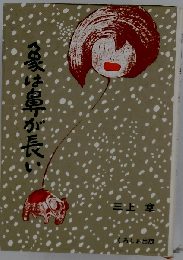 象は鼻が長い
三上 章
くろしお出版